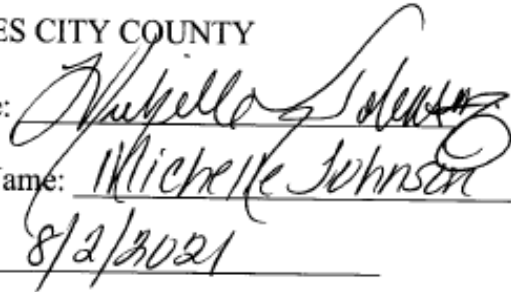 ES CITY COUNTY
e:
ame: Michelle Johnson
8/2/2021